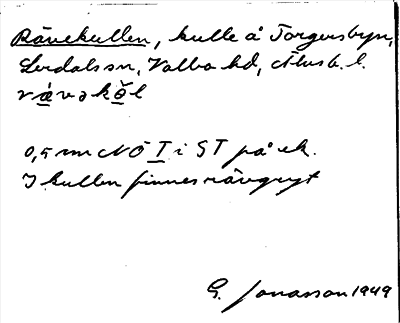 Rävekullen, kulle å Torgersbyn,
Lerdals sn, Valbo hd, Älvsb. l.
rävəköl
0,5 mm NÖ I i ST på ek.
I kullen finnes rävgryt
G. Jonasson 1949